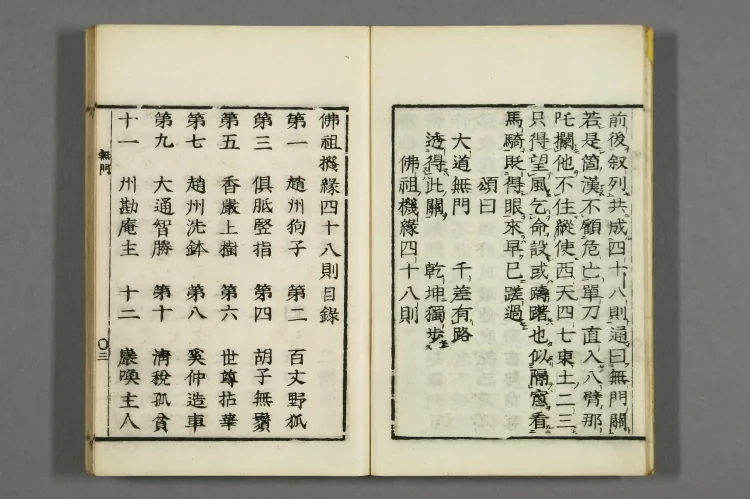 前後叙列共成四十八則通曰無門關
若是箇漢不顧危亡單刀直入八臂那
吒攔他不住縱使西天四七東土二三
只得望風乞命設或躊躇也似隔窻看
馬騎貶得眼來早已蹉過
頌曰
大道無門 千差有路
透得此關 乾坤獨步
佛祖機緣四十八則
佛祖機緣四十八則目録
第一 趙州狗子 第二 百丈野狐
第三 俱胝竪指 第四 胡子無鬚
第五 香嚴上樹 第六 世尊拈華
第七 趙州洗鉢 第八 奚仲造車
第九 大通智勝 第十 清稅孤貧
十一 州勘庵主 十二 巖喚主人
無門 〇三